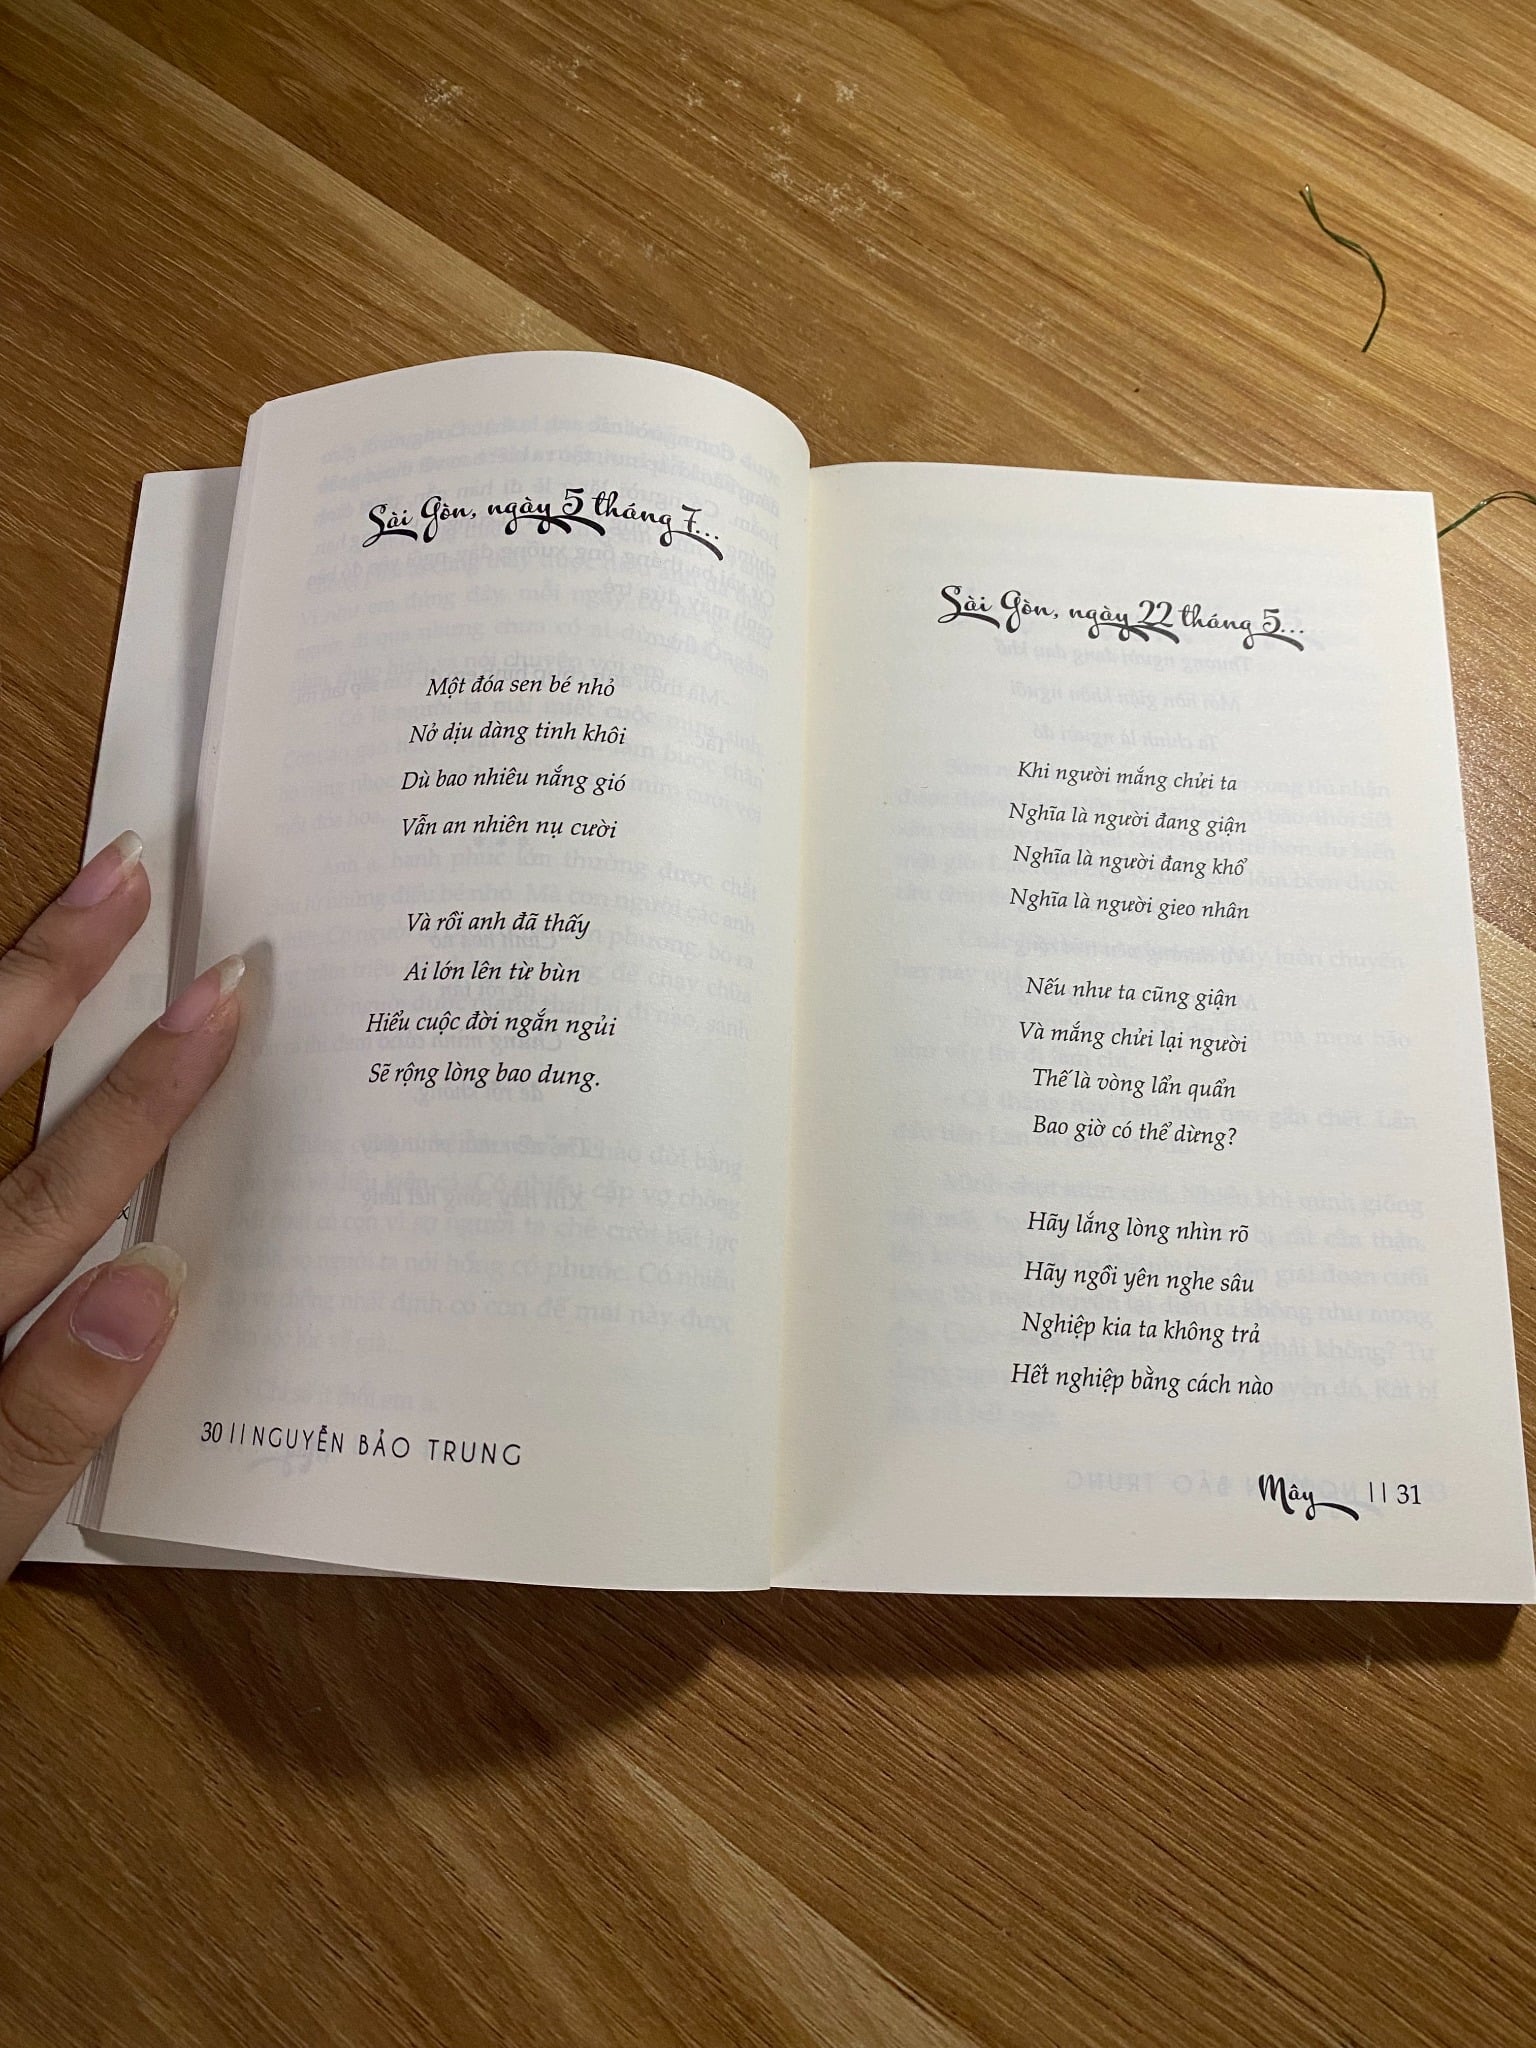 Sài Gòn, ngày 5 tháng 7...
Một đóa sen bé nhỏ
Nở dịu dàng tinh khôi
Dù bao nhiêu nắng gió
Vẫn an nhiên nụ cười
Và rồi anh đã thấy
Ai lớn lên từ bùn
Hiểu cuộc đời ngắn ngủi
Sẽ rộng lòng bao dung.
30 || NGUYỄN BẢO TRUNG
Sài Gòn, ngày 22 tháng 5...
Khi người mắng chửi ta
Nghĩa là người đang giận
Nghĩa là người đang khổ
Nghĩa là người gieo nhân
Nếu như ta cũng giận
Và mắng chửi lại người
Thế là vòng lẩn quẩn
Bao giờ có thể dừng?
Hãy lắng lòng nhìn rõ
Hãy ngồi yên nghe sâu
Nghiệp kia ta không trả
Hết nghiệp bằng cách nào
Mây || 31